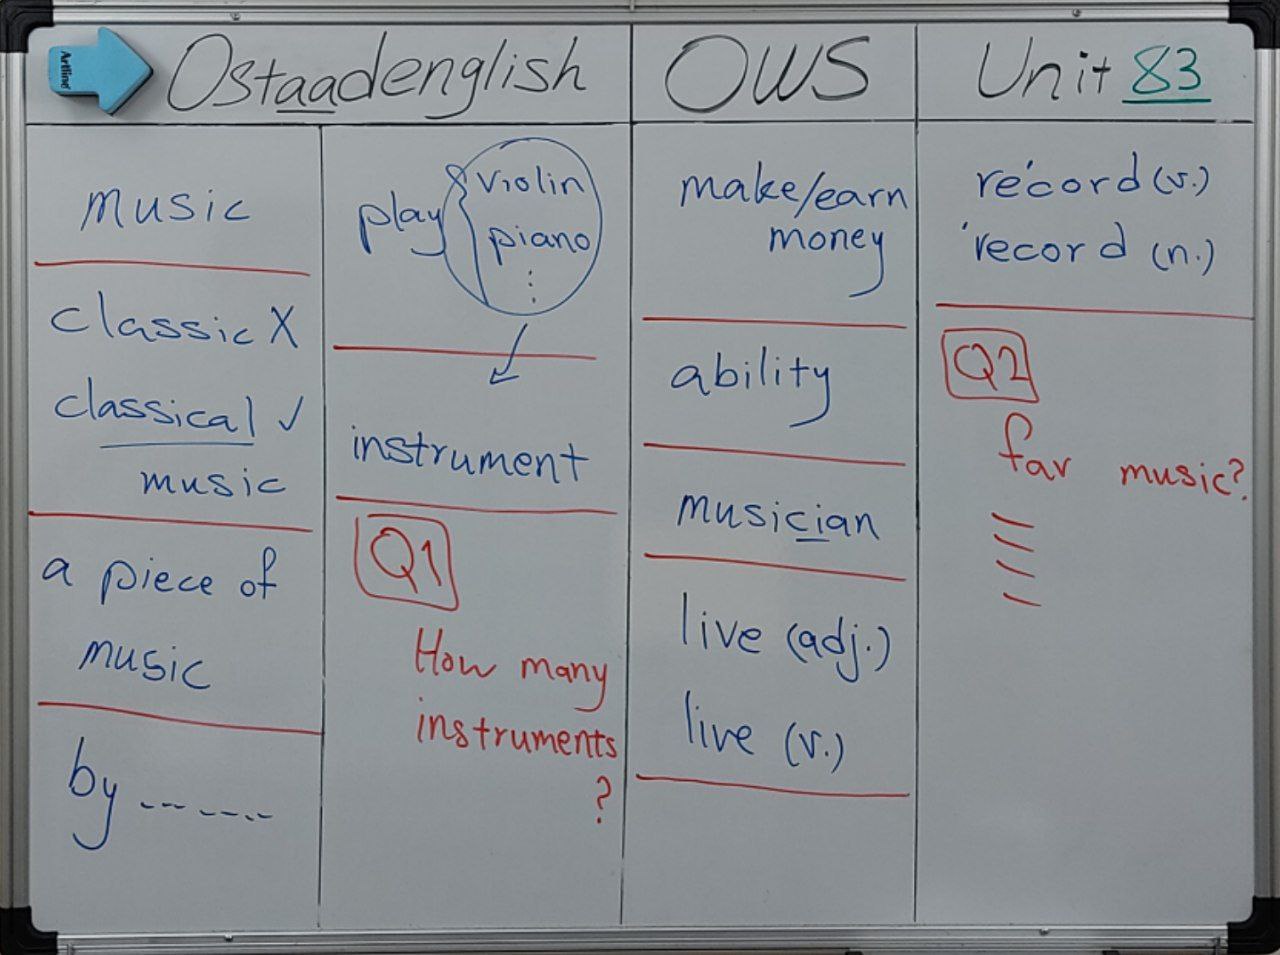 Artline
Ostaadenglish
OWS
Unit 83
music
classic X
classical ✓
music
a piece of
music
by -------
play { violin
piano
⋮
instrument
Q1
How many
instruments
?
make/earn
money
ability
musician
live (adj.)
live (v.)
re'cord (v.)
'record (n.)
Q2
fav music?